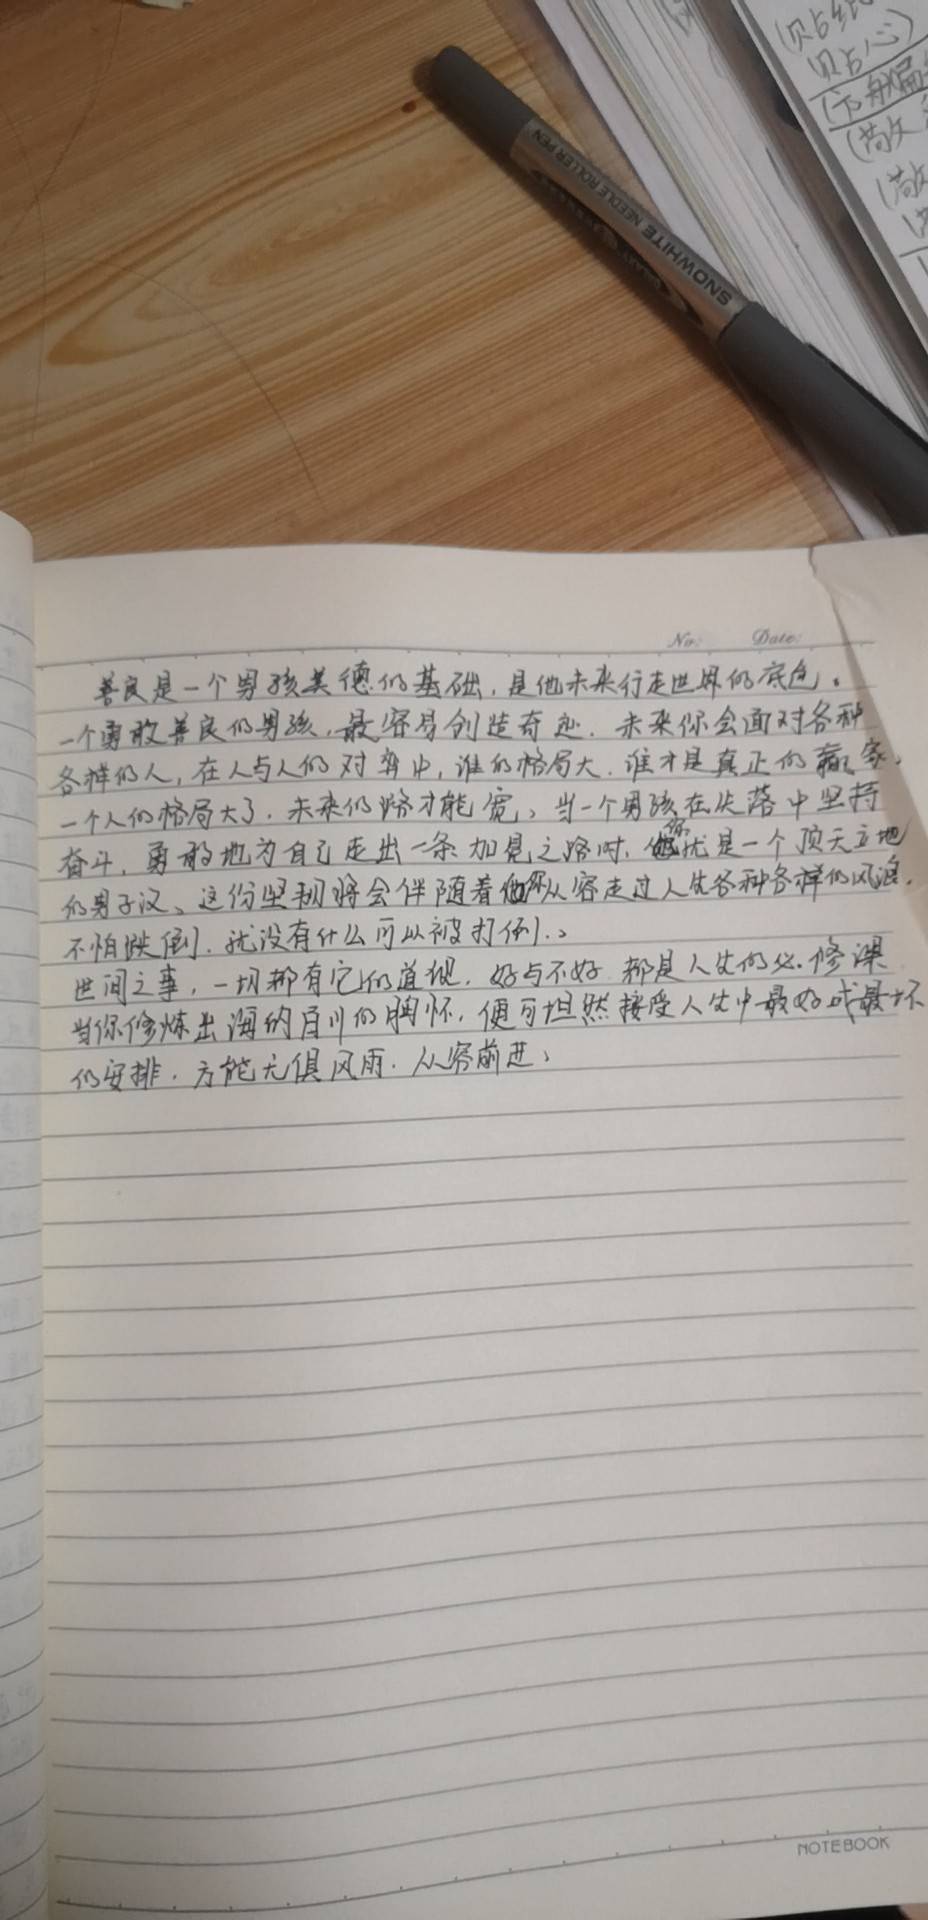 (贴纸
(贴心)
SNOWHITE NEEDLE ROLLER PEN
No:
Date:
善良是一个男孩美德的基础,是他未来行走世界的底色。
一个勇敢善良的男孩,最容易创造奇迹.未来你会面对各种
各样的人,在人与人的对弈中,谁的格局大.谁才是真正的赢家。
一个人的格局大了.未来的路才能宽。当一个男孩在失落中坚持
奋斗.勇敢地为自己走出一条加冕之路时.你就是一个顶天立地
的男子汉。这份坚韧将会伴随着你从容走过人生各种各样的风浪.
不怕跌倒.就没有什么可以被打倒.。
世间之事,一切都有它的道理.好与不好.都是人生的必修课
当你修炼出海纳百川的胸怀.便可坦然接受人生中最好或最坏
的安排.方能无惧风雨.从容前进。
NOTEBOOK